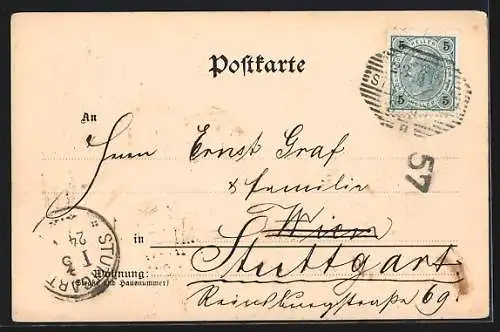 Postkarte
5 HELLER 5
5 HELLER 5
57
An
Herrn Ernst Graf
& Familie
in Wien
Stuttgart
STUTTGART
24
Wohnung:
(Straße und Hausnummer)
Reinsburgstraße 69.